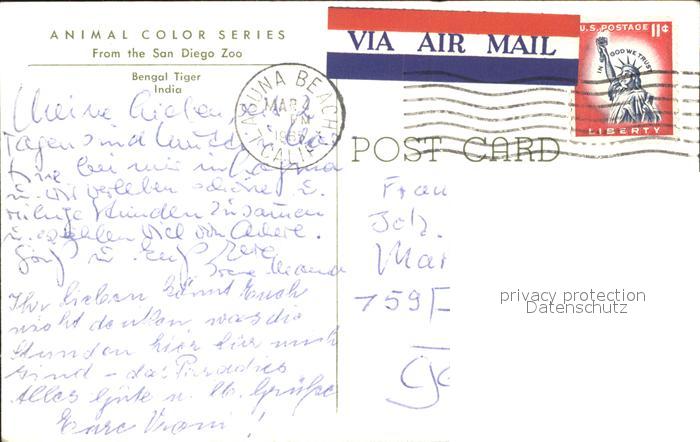 ANIMAL COLOR SERIES
From the San Diego Zoo
Bengal Tiger
India
VIA AIR MAIL
U.S. POSTAGE 11¢
IN GOD WE TRUST
LIBERTY
LAGUNA BEACH
MAR
PM
CALIF.
POST CARD
Meine Lieben, seit
Tagen sind
bei mir in Laguna
u. wir verleben schöne u.
ruhige Stunden zusammen
u. erzählen viel von
u.
Ihr Lieben könnt Euch
nicht denken, was die
Stunden hier für mich
sind - das Paradies
Alles Gute u. lb. Grüße
Eure Vroni!
Frau
Joh.
Mar
759
privacy protection
Datenschutz